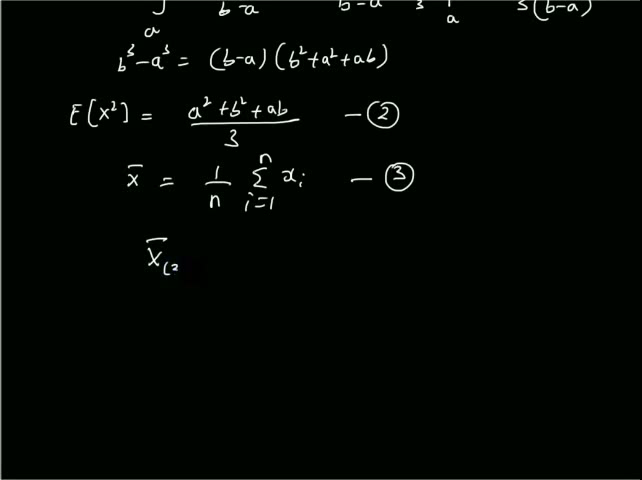 ∫ₐ b-a b-a 3 a 3(b-a)
b³-a³ = (b-a)(b²+a²+ab)
E[X²] = (a²+b²+ab)/3 — ②
x̄ = 1/n Σᵢ₌₁ⁿ xᵢ — ③
X̄₍₂